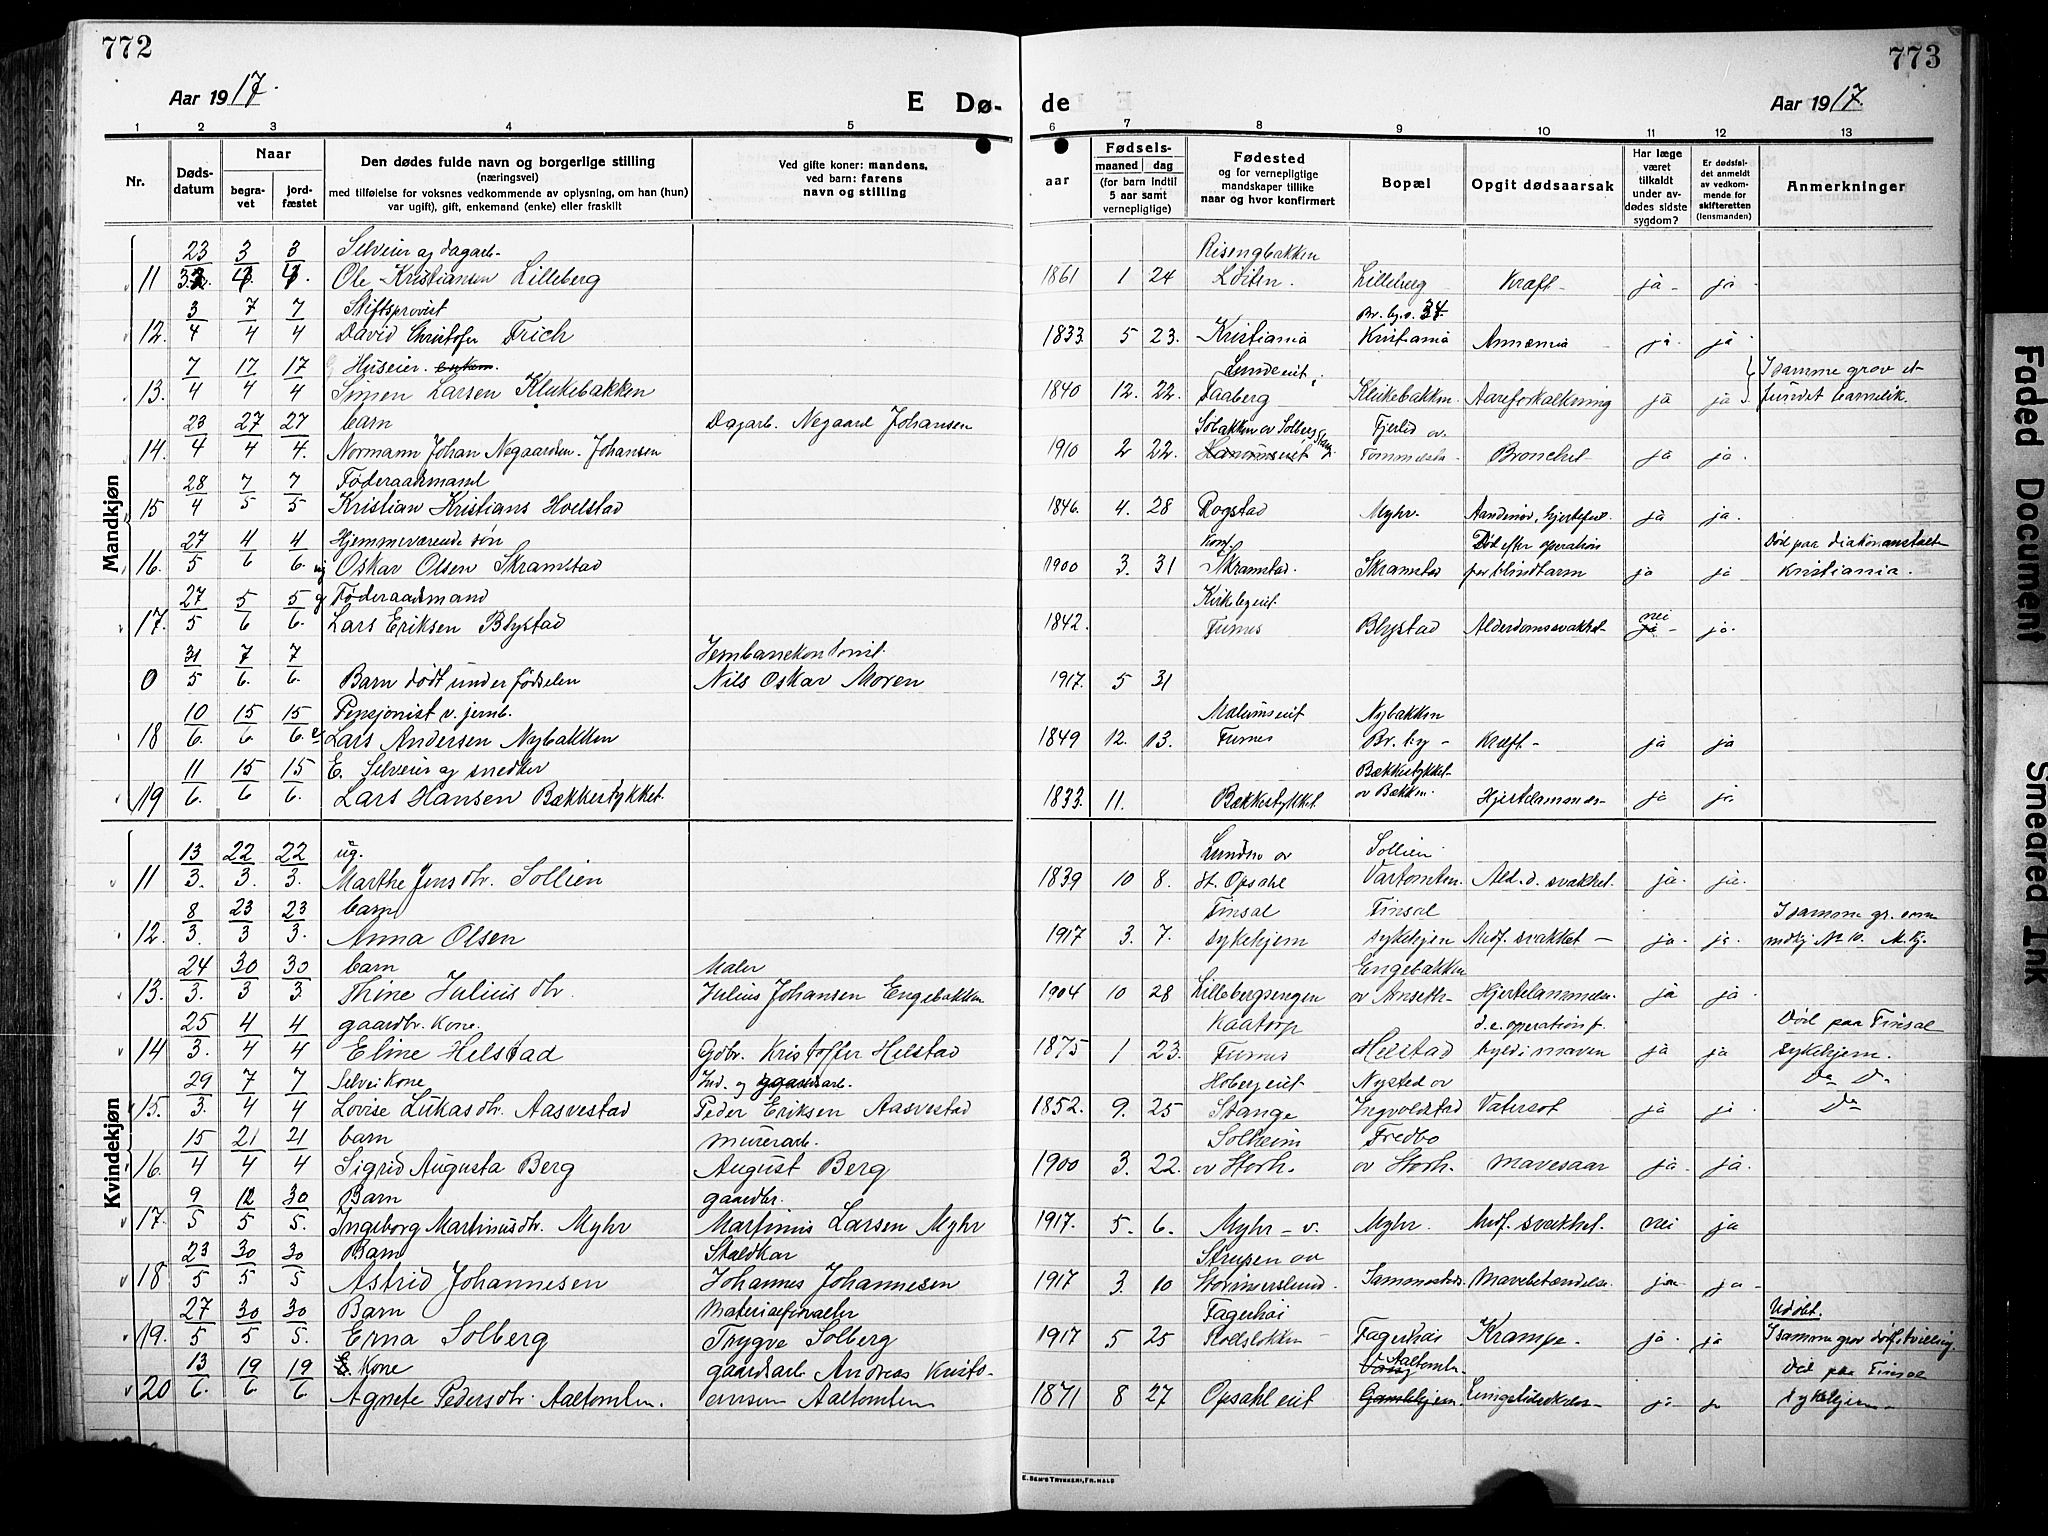 772
773
Aar 1917.
E Dø-
de
Aar 1917.
1 2 3 4 5 6 7 8 9 10 11 12 13
Nr.
Døds-
datum
Naar
begra-
vet
jord-
fæstet
Den dødes fulde navn og borgerlige stilling
(næringsvei)
med tilføielse for voksnes vedkommende av oplysning, om han (hun)
var ugift), gift, enkemand (enke) eller fraskilt
Ved gifte koner: mandens,
ved barn: farens
navn og stilling
aar
Fødsels-
maaned dag
(for barn indtil
5 aar samt
vernepligtige)
Fødested
og for vernepligtige
mandskaper tillike
naar og hvor konfirmert
Bopæl
Opgit dødsaarsak
Har læge
været
tilkaldt
under av-
dødes sidste
sygdom?
Er dødsfal-
det anmeldt
av vedkom-
mende for
skifteretten
(lensmanden)
Anmerkninger
Mandkjøn
23 3 3 Selveier og dagarb. Risengbakken
11 Ole Kristiansen Lilleberg 1861 1 24 Løiten. Lilleberg Kræft ja ja
3 7 7 Stiftsprovst Br. by. 34
12. 4 4 4 David Christofer Frich 1833. 5 23. Kristiania Kristiania Annæmia ja ja
7 17 17 Huseier. Lundeeiet I samme grav et
13. 4 4 4 Simen Larsen Klukebakken 1840 12. 22. Faaberg Klukebakken Aareforkalkning ja ja fundet barnelik.
23 27 27 barn Dagarb. Negaard Johansen Solbakken av Solberg Fjerlid av
14. 4 4 4. Normann Johan Negaarden Johansen 1910 2 22. Bronchit ja ja.
28 7 7 Føderaadsmand
15 4 5 5 Kristian Kristians Hoelstad 1846. 4. 28 Rogstad Myhr. Aandenød, hjertefeil ja ja.
27 4 4 Hjemmeværende søn Konf. Død efter operation Død paa diakonanstalt
16. 5 6 6. ug Oskar Olsen Skramstad 1900 3. 31 Skramstad. Skramstad for blindtarm ja ja Kristiania.
27 5 5 g Føderaadsmand Kirkebyeiet nei
17. 5 6 6. Lars Eriksen Blystad 1842. Furnes Blystad Alderdomssvakhet ja ja.
31 7 7 Jernbanekontorist
0 5 6. 6. Barn dødt under fødselen Nils Oskar Moren 1917. 5 31
10 15 15 Pensjonist v. jernb. Malumseiet Nybakken
18 6. 6 6. Lars Andersen Nybakken 1849 12. 13. Furnes Br. by Kræft ja ja
11 15 15 E. Selveier og snedker Bækkestykket
19 6. 6 6. Lars Hansen Bækkestykket. 1833. 11. Bækkestykket av Bakken. Hjertelammelse ja ja
Kvindekjøn
13 22 22 ug. Lunden av Sollien
11 3. 3. 3. Marthe Jensdtr. Sollien 1839 10 8. St. Opsahl Vartomten. Ald. d. svakhet. ja. ja.
8 23 23 barn Finsal Finsal I samme gr. som
12. 3. 3 3. Anna Olsen 1917 3. 7. sykehjem sykehjem Medf. svakhet ja ja. mdkj. No 10. M.kj.
24 30 30 barn Maler Engebakken
13. 3. 3 3 Thine Juliusdtr. Julius Johansen Engebakken 1904 10 28 Lillebergsengen av Anseth Hjertelammelse ja ja
25 4 4 gaardbr. kone. Kaatorp d. e. operation f. Død paa Finsal
14 3. 4 4 Eline Helstad Gdbr. Kristoffer Helstad 1875 1 23. Furnes Helstad byld i maven ja ja sykehjem.
29 7 7 Selvei Kone Ind. og gaardsarb. Hobergeiet Nysted av Do Do
15. 3. 4 4 Lovise Lukasdtr. Aasvestad Peder Eriksen Aasvestad 1852. 9. 25 Stange Ingvoldstad Vatersot ja ja Do
15 21 21 barn murerarb. Solheim Fredbo
16. 4 4 4 Sigrid Augusta Berg August Berg 1900 3. 22. av Storh. av Storh. Mavesaar ja ja.
9 12 30 Barn gaardbr.
17. 5 5 5. Ingeborg Martinusdtr. Myhr Martinus Larsen Myhr 1917. 5. 6. Myhr v. Myhr. Medf. svakhet. nei ja
23 30 30 Barn Staldkar Strupen av
18 5 5 5 Astrid Johannesen Johannes Johannesen 1917 3. 10 Mavebetændelse ja ja
27 30 30 Barn Materialforvalter Fagerhøi Udøbt.
19. 5 5 5. Erna Solberg Trygve Solberg 1917 5 25 Fagerhøi Krampe. ja. ja I samme grav dødf. tvilling
13 19 19 Kone gaardsarb Andreas Kristo- Aaltomten Død paa Finsal
20 6. 6 6 Agnete Pedersdtr. Aaltomten. ansen Aaltomten 1871 8 27 Opsahl eiet Gamlehjem ja ja sykehjem
E. SEM'S TRYKKERI, FR.HALD
Faded Document
Smeared Ink